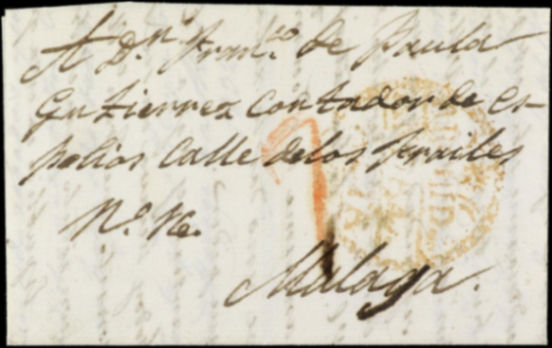 A Dn. Franco. de Paula
Gutierrez Contador de es-
polios Calle de los Frailes
No. 16.
Malaga.